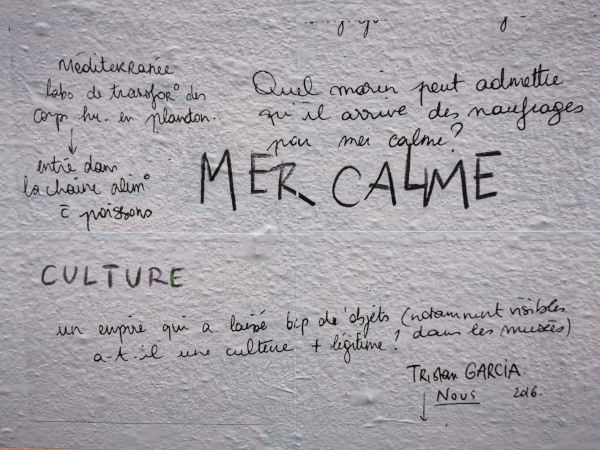 Méditerranée
labo de transfor° des
corps hu. en plancton.
↓
entré dans
la chaîne alim°
c̄ poissons
Quel marin peut admettre
qu'il arrive des naufrages
par mer calme?
MER CALME
CULTURE
un empire qui a laissé bcp de objets (notamment visibles
a-t-il une culture + légitime? dans les musées)
Tristan GARCIA.
↓ Nous 2016.